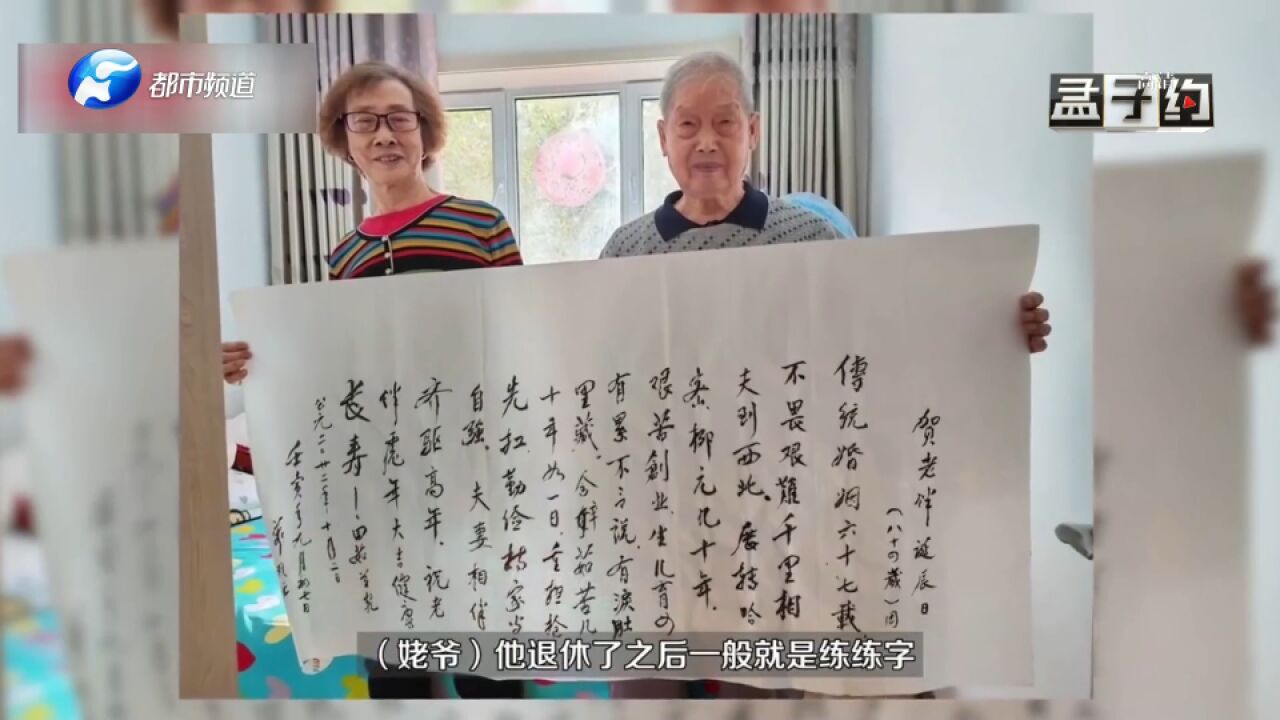 都市频道
孟子约
贺老伴诞辰日
（八十四歲）周
傳統婚姻六十七載
不畏艰難千里相
夫到西北。展轉哈
密、柳元几十年。
艰苦創业生儿育女
有累不言说，有淚肚
里藏，含辛茹苦几
十年如一日，重担抢
先扛，勤俭持家
自强。夫妻相伴
齐驱高年。祝老
伴虎年大吉健康
长寿！
公元二〇二二年十月二日
壬寅年九月初七日
（姥爷）他退休了之后一般就是练练字